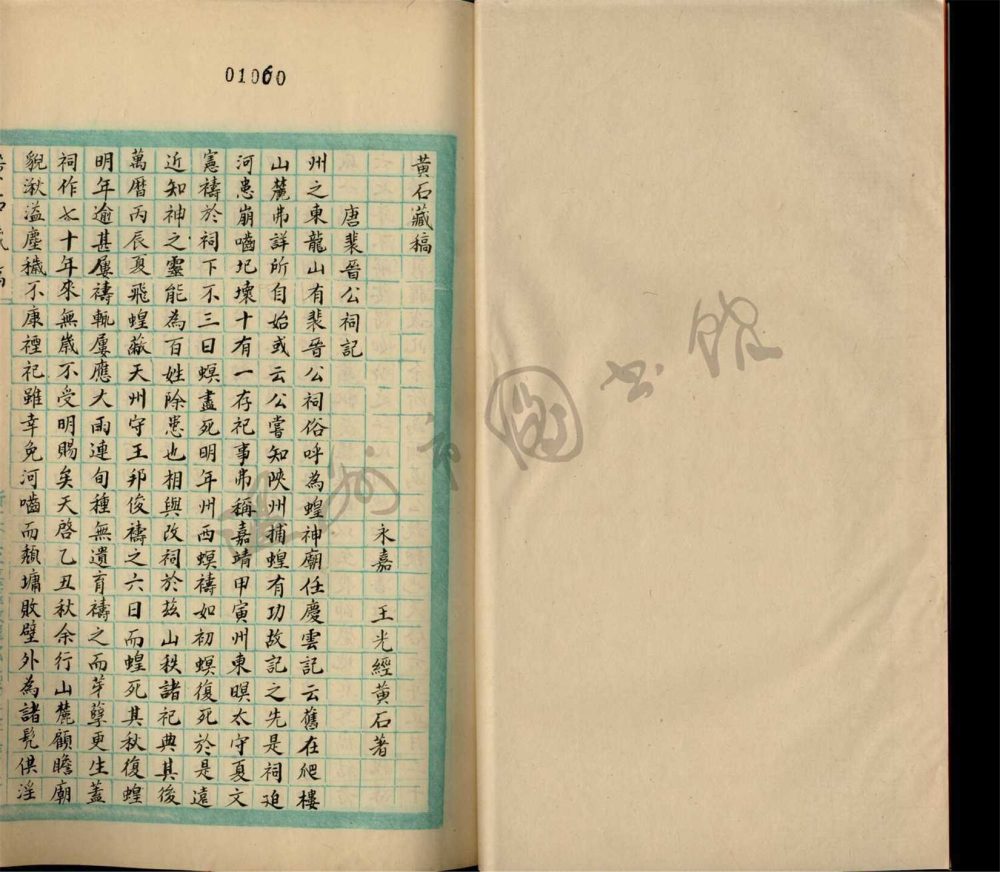 01060
黄石藏稿
永嘉 王光經黄石著
唐裴晉公祠記
州之東龍山有裴晉公祠俗呼為蝗神廟任慶雲記云舊在爬樓
山麓弗詳所自始或云公嘗知陝州捕蝗有功故記之先是祠迫
河患崩嚙圮壞十有一存祀事弗稱嘉靖甲寅州東螟太守夏文
憲禱於祠下不三日螟盡死明年州西螟禱如初螟復死於是遠
近知神之靈能為百姓除患也相與改祠於兹山秩諸祀典其後
萬曆丙辰夏飛蝗蔽天州守王邦俊禱之六日而蝗死其秋復蝗
明年逾甚屢禱輒屢應大雨連旬種無遺育禱之而芽孽更生蓋
祠作七十年來無歲不受明賜矣天啓乙丑秋余行山麓顧瞻廟
貌湫溢塵穢不康禋祀雖幸免河嚙而頹墉敗壁外為諸髡俱淫
温州市圖书館